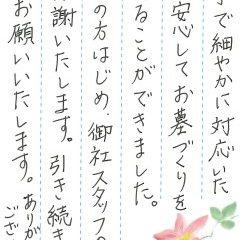 寧で細やかに対応いた
安心してお墓づくりを
ることができました。
の方はじめ、御社スタッフの
感謝いたします。引き続き
お願いいたします。ありが
ござ